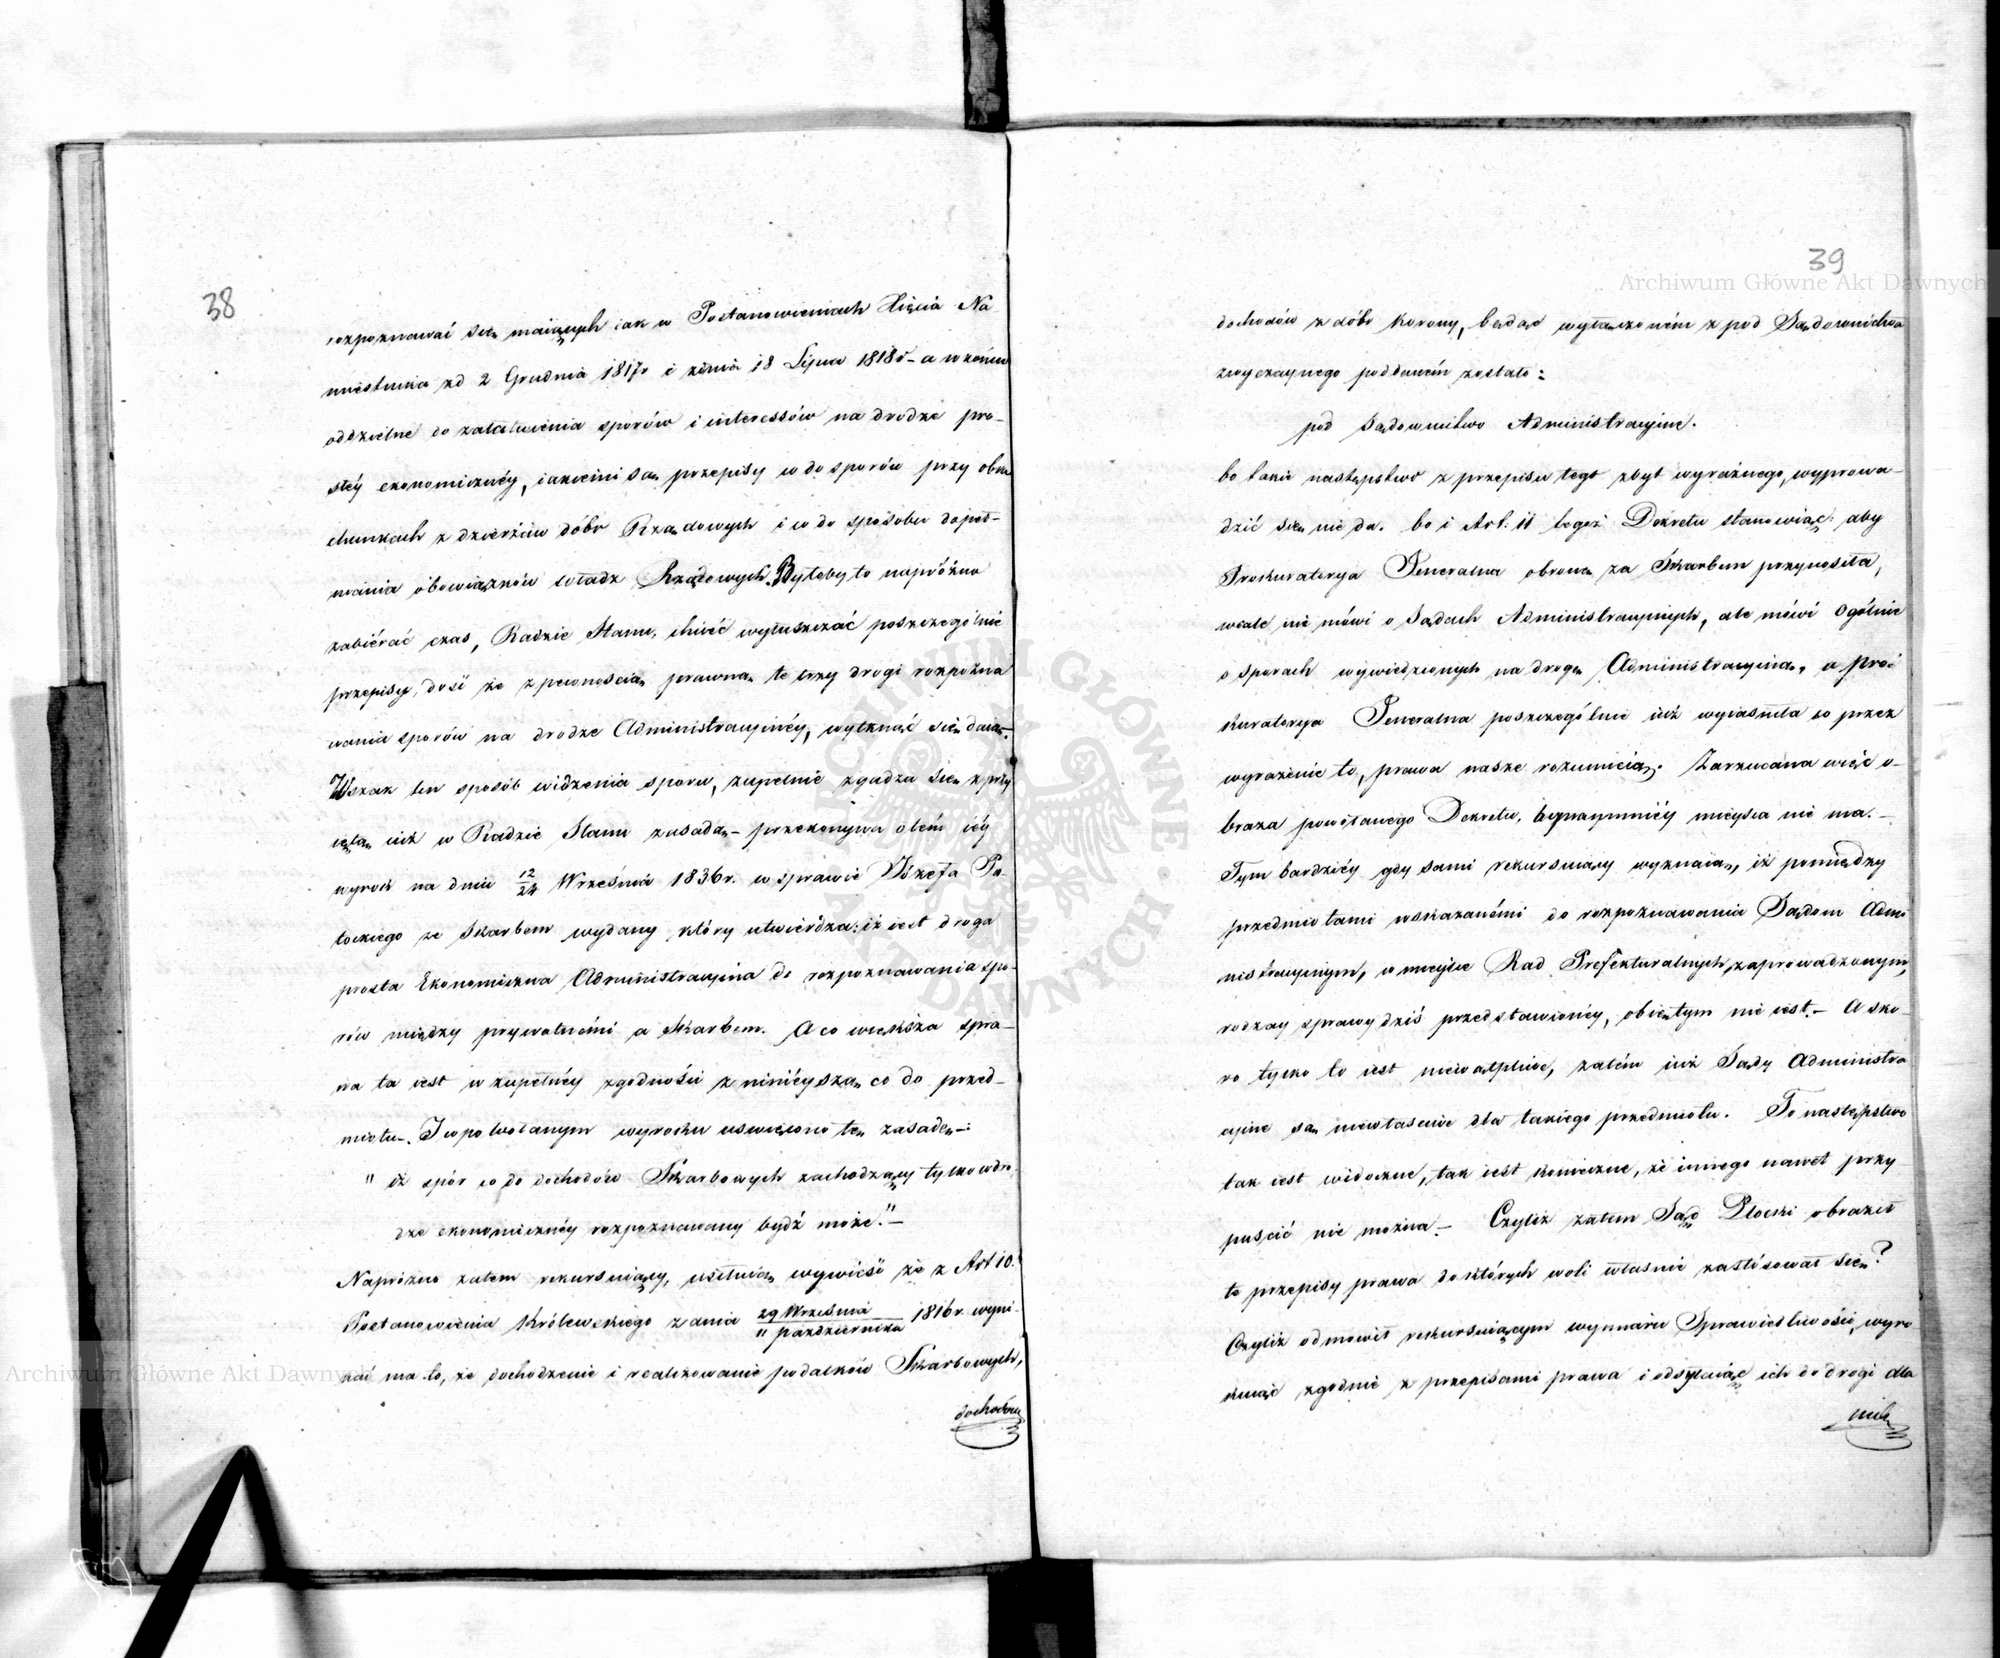 38
rozpoznawać się maiących iak w Postanowieniach Xięcia Na
miestnika zd 2 Grudnia 1817r i zdnia 18 Lipca 1818r - a w końcu
oddzielne do załatwienia sporów i interessów na drodze pro-
stéy ekonomicznéy, iakiemi są przepisy co do sporów przy obra
chunkach z dzierżaw dóbr Rządowych i co do sposobu dopeł-
niania obowiązków władz Rządowych. Byłoby to napróżno
zabiérać czas, Radzie Stanu, chcieć wyłuszczać poszczególnie
przepisy, dosć że z pewnością prawną te trzy drogi rozpozna
wania sporów na drodze Administracyinéy, wytknąć się daią.
Wszak ten sposób widzenia sporu, zupełnie zgadza się z przy
iętą iuż w Radzie Stanu zasadą - przekonywa otém iéy
wyrok na dniu 12/24 Września 1836r. w sprawie Józefa Po-
tockiego ze Skarbem wydany, który utwierdza: iż iest droga
prosta Ekonomiczna Administracyina do rozpoznawania spo-
rów między prywatnémi a Skarbem. A co większa spra-
wa ta iest w zupełnéy zgodności z niniéyszą co do przed-
miotu. I w powołanym wyroku uswięcono tę zasadę:
" iż spór co do dochodów Skarbowych zachodzący tylko w dro
dze ekonomicznéy rozpoznawany bydź może." -
Napróżno zatem rekursuiący, usiłuią wywieść że z Art 10.
Postanowienia Królewskiego z dnia 29 Września / 11 października 1816r. wyni-
kać ma to, że dochodzenie i realizowanie podatków Skarbowych,
dochodów
39
dochodów z dóbr Korony, będąc wyłączoném z pod Sądownictwa
zwyczaynego poddaném zostało:
pod Sądownictwo Administracyine.
bo takie następstwo z przepisu tego zbyt wyraźnego, wyprowa-
dzić się nie da. bo i Art: 11 tegoż Dekretu stanowiąc: aby
Prokuratorya Jeneralna obronę za Skarbem przynosiła,
wcale nie mówi o Sądach Administracyinych, ale mówi ogólnie
o sporach wywiedzionych na drogę Administracyiną, a pro-
kuratorya Jeneralna poszczególnie iuż wyiasniła co przez
wyrażenie to, prawa nasze rozumieią. Zarzucana więc o-
braza powołanego Dekretu, bynaymniéy mieysca nie ma. -
Tym bardziéy gdy sami rekursuiący wyznaią, iż pomiędzy
przedmiotami wskazanémi do rozpoznawania Sądom Admi
nistracyinym, w mieysce Rad Prefekturalnych, zaprowadzonym,
rodzay sprawy dziś przedstawionéy, obiętym nie iest. - A sko-
ro tylko to iest niewątpliwe, zatém iuż Sądy Administra
cyine są niewłasciwe dla takiego przedmiotu. To następstwo
tak iest widoczne, tak iest konieczne, że innego nawet przy
puścić nie można - Czyliż zatem Sąd Płocki obraził
te przepisy prawa do których woli własnie zastósował się?
Czyliż odmówił rekursuiącym wymiaru Sprawiedliwości, wyro
kuiąc zgodnie z przepisami prawa i odsyłaiąc ich do drogi dla
nich
Archiwum Główne Akt Dawnych
Archiwum Główne Akt Dawnych
ARCHIWUM GŁÓWNE AKT DAWNYCH